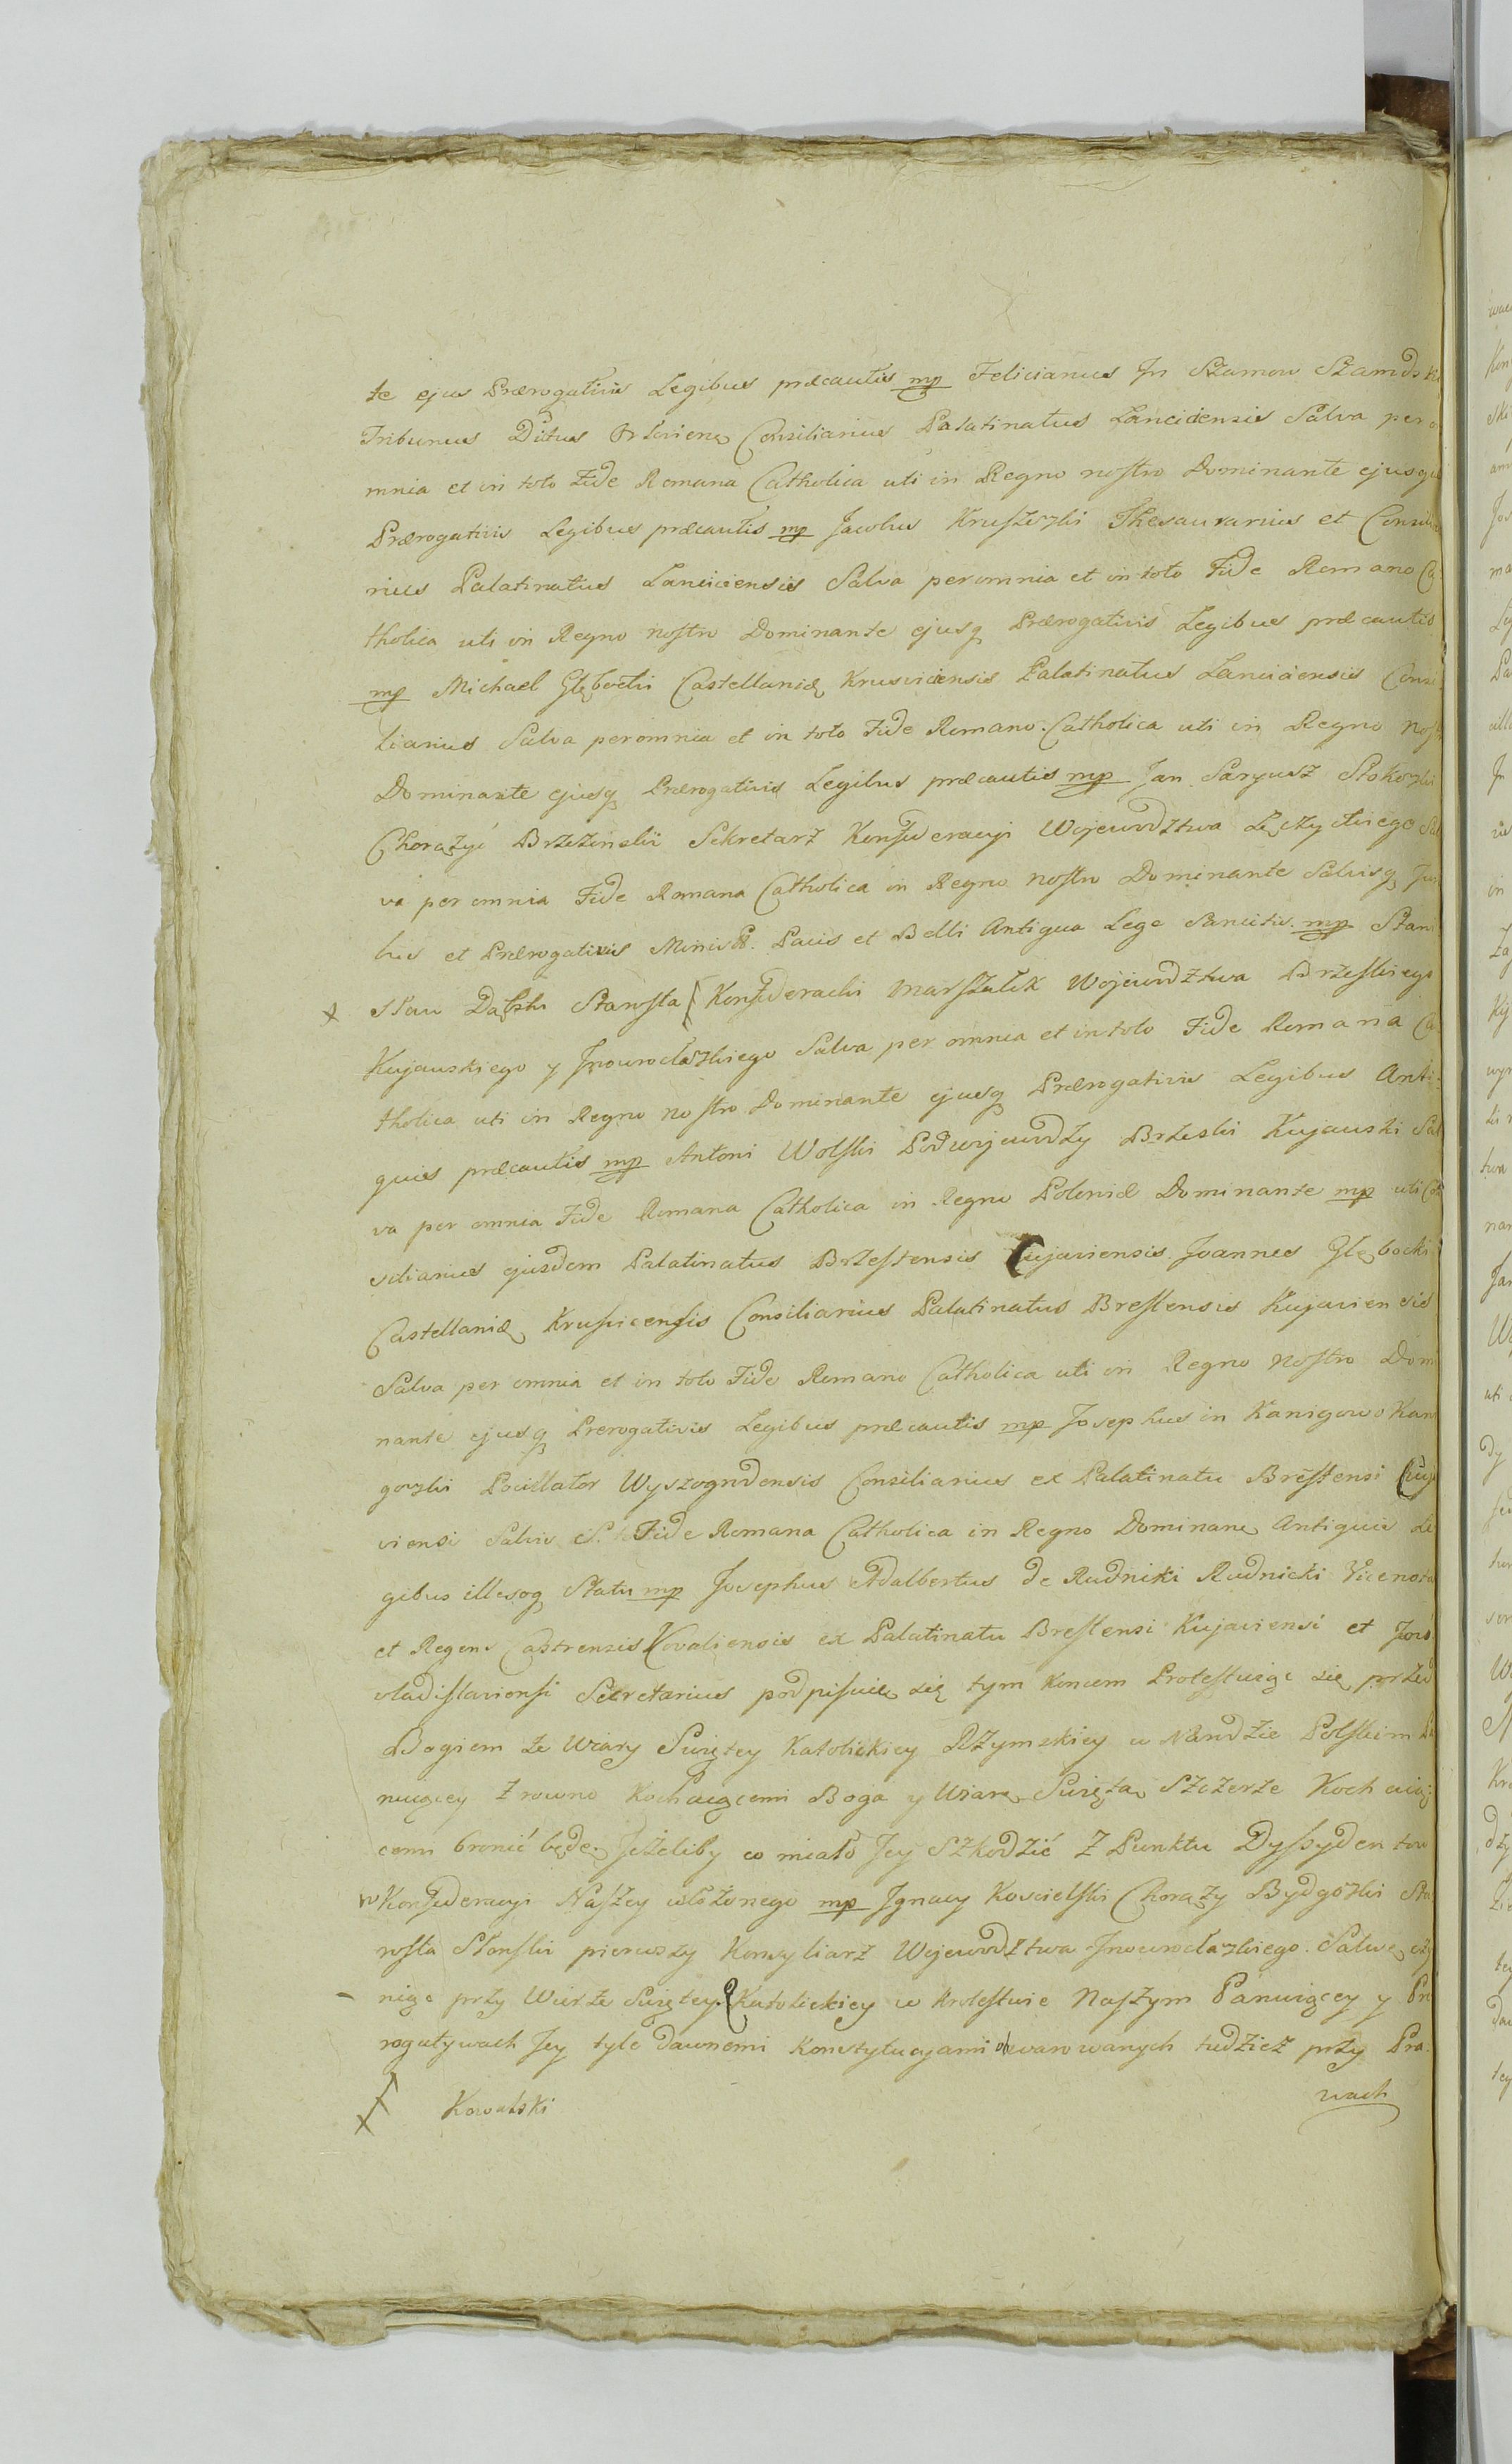 te ejus Prærogativis Legibus præcautis mp Felicianus In Szamow Szamowski
Tribunus Dictus Orloviens Consiliarius Palatinatus Lancidensis Salva per o
mnia et in toto Fide Romana Catholica uti in Regno nostro Dominante ejusque
Prærogativis Legibus præcautis mp Jacobus Kruszeski Thesaurarius et Consilia
rius Palatinatus Lanciciensis Salva per omnia et in toto Fide Romano Ca
tholica uti in Regno nostro Dominante ejusq Prærogativis Legibus præcautis
mp Michael Głębocki Castellanidę Krusviciensis Palatinatus Lanciciensis Consi
liarius Salva per omnia et in toto Fide Romano. Catholica uti in Regno nost
Dominante ejusq Prærogativis Legibus præcautis mp Jan Saryusz Stokowski
Chorążyć Brzezinskii Sekretarz Konfederacyi Wojewodztwa Łęczyckiego Sal
va per omnia Fide Romana Catholica in Regno nostro Dominante Salvisq Juri
bus et Prærogativis Pacis et Belli Antiqua Lege Sancitis. mp Stani
sław Dąbski Starosta Konfederacki Marszałek Wojewodztwa Brzeskiego
Kujawskiego y Inowrocławskiego Salva per omnia et in toto Fide Romana Ca
tholica uti in Regno nostro Dominante ejusq Prærogativis Legibus Anti
quis præcautis mp Antoni Wolski Podwojewodzy Brzeski Kujawski Sal
va per omnia Fide Romana Catholica in Regno Poloniæ Dominante mp uti Con
siliarius ejusdem Palatinatus Brzestensis Cujaviensis. Joannes Głębocki
Castellanidę Krusvicensis Consiliarius Palatinatus Brestensis Kujaviensis
Salva per omnia et in toto Fide Romano Catholica uti in Regno Nostro Domi
nante ejusq Prerogativis Legibus præcautis mp Josephus in Kanigowo Kani
gowski Pocillator Wyszogrodensis Consiliarius ex Palatinatu Brestensi Cuja
viensi Salvis S. Fide Romana Catholica in Regno Dominane Antiquis Le
gibus illesoq Statu mp Josephus Adalbertus de Rudniki Rudnicki Vicenota
et Regens Castrensis Kovaliensis ex Palatinatu Brestensi Kujaviensi et Juni
vladislaviensi Secretarius podpisuię się tym koncem Protestuiąc się przed
Bogiem że wiary Swiętey Katolickiey Rzymskiey w Narodzie Polskim Pa
nuiącey z rowno Kochaiącemi Boga y Wiarę Swiętą Szczerze Kochaią
cemi bronić będę. Jeżeliby co miało Jey Szkodzić z Punktu Dyssydentow
w Konfederacyi Naszey ułożonego mp Ignacy Koscielski Chorąży Bydgoski Sta
rosta Słonski pierwszy Konsyliarz Wojewodztwa Inowrocławskiego. Salwę czy
niąc przy Wierze Swiętey Katolickiey w Krolestwie Naszym Panuiącey y Pre
rogatywach Jey tyle dawnemi Konstytucyami obwarowanych tudzież przy Pra
Kowalski
wach